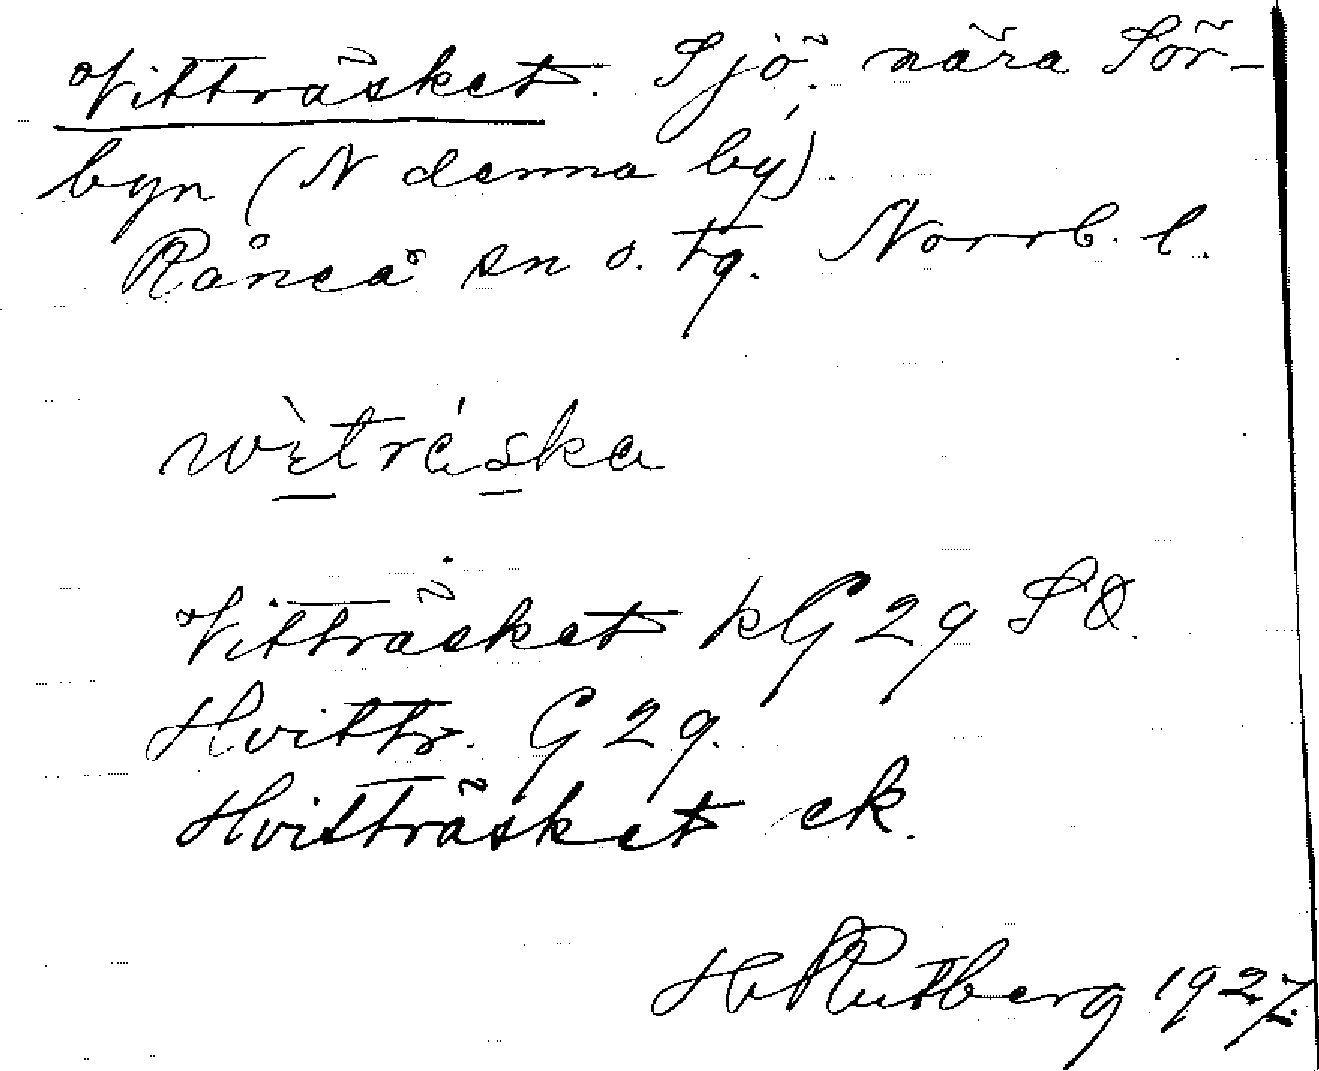 Vitträsket. Sjö nära Sör-
byn (N denna by).
Råneå sn o. tg. Norrb. l.
wìtrá̱ska
Vitträsket kG 29 SO.
Hvittr. G 29.
Hvitträsket ek.
H Rutberg 1927.